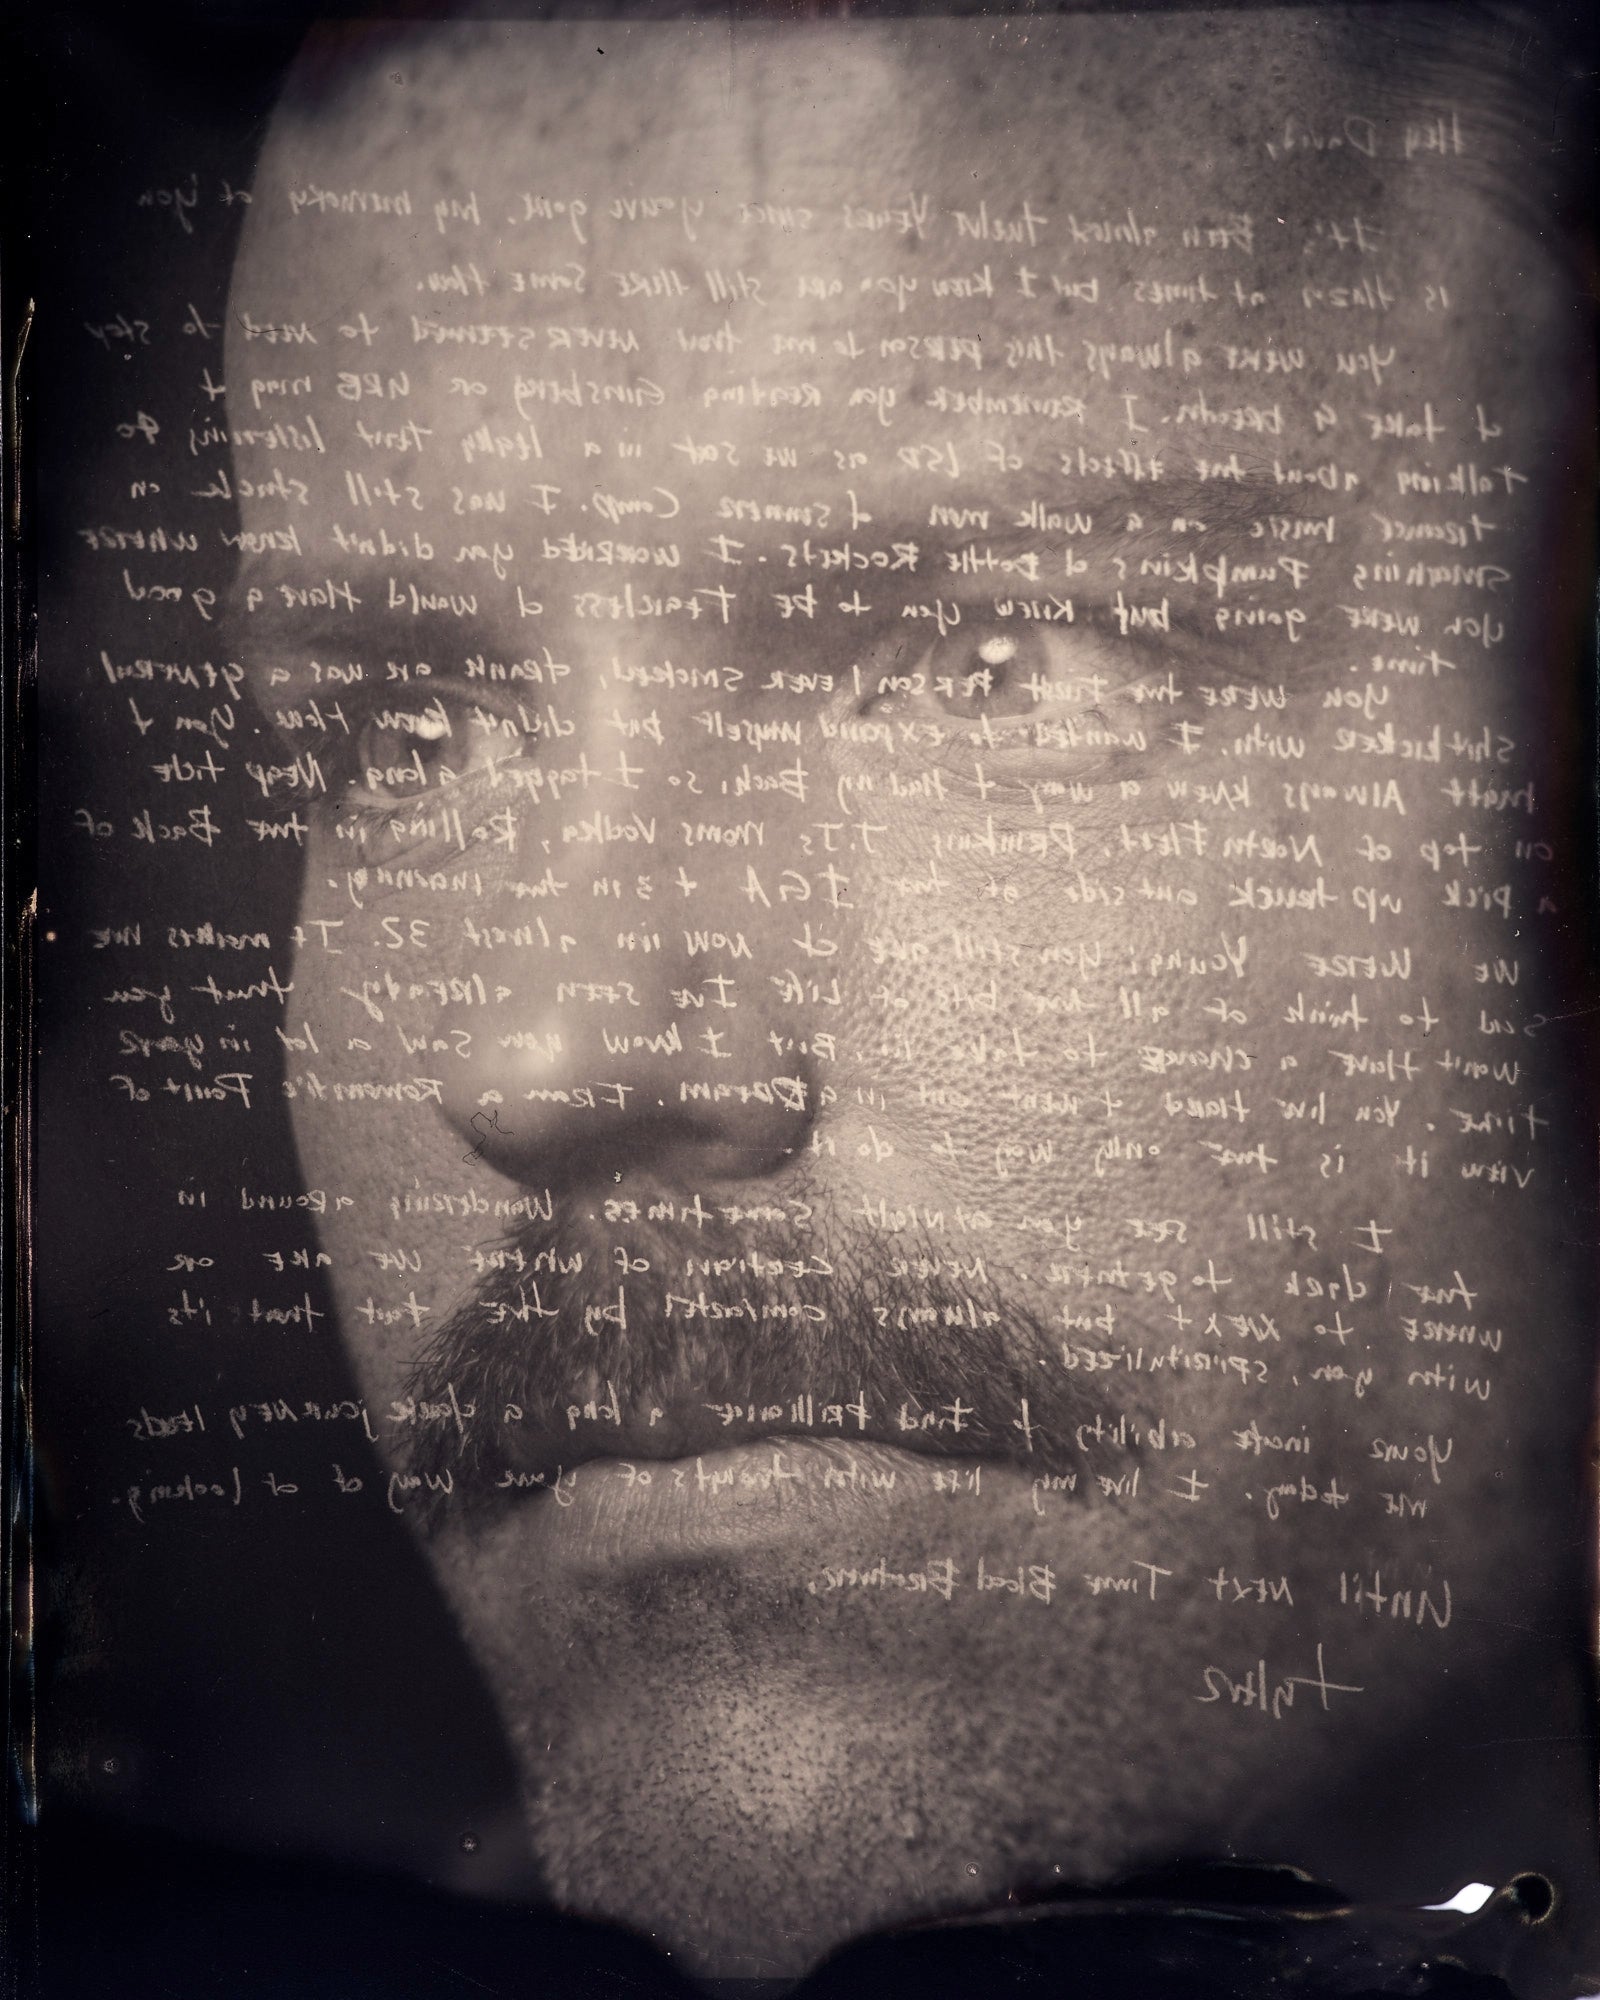 Hey David,
It's Been almost twelve years since you've gone. my memory of you
is Hazy at times but I know you are still there some how.
You were always this person to me that never seemed to need to stop
& take a breath. I remember you reading Ginsberg or
talking about the effects of LSD as we sat in a leaky tent listening to
trance music on a walk mun Camp. I was still stuck on
Smashing Pumpkins & Bottle Rockets. I worried you didn't know where
you were going but knew you to be Fearless & would Have a good
time.
You were the First Person I ever smoked, drank and was a general
shitkicker with. I wanted to expand myself but didnt know How. You &
Matt Always knew a way & Had my Back, so I tagged along. Neap tide
on top of North Hert, Drinking J.J's moms Vodka, Rolling in the Back of
a pick up truck outside of the IGA at 3 in the morning.
We Were Young; you still are & now im almost 32. It makes me
sad to think of all the bits of Life I've seen already that you
wont Have a chance to take in. But I know you saw a lot in your
time. You live Hard & went out in a Dream. From a Romantic Point of
view it is the only way to do it.
I still see you at Night sometimes. Wandering around in
the dark together. Never certain of where we are or
where to next but always comforted by the fact that its
with you, spiritulized.
Your inate ability to find brilliance a long a dark journey leads
me today. I live my life with thoughts of your way of looking.
Until next Time Blood Brother,
tyler